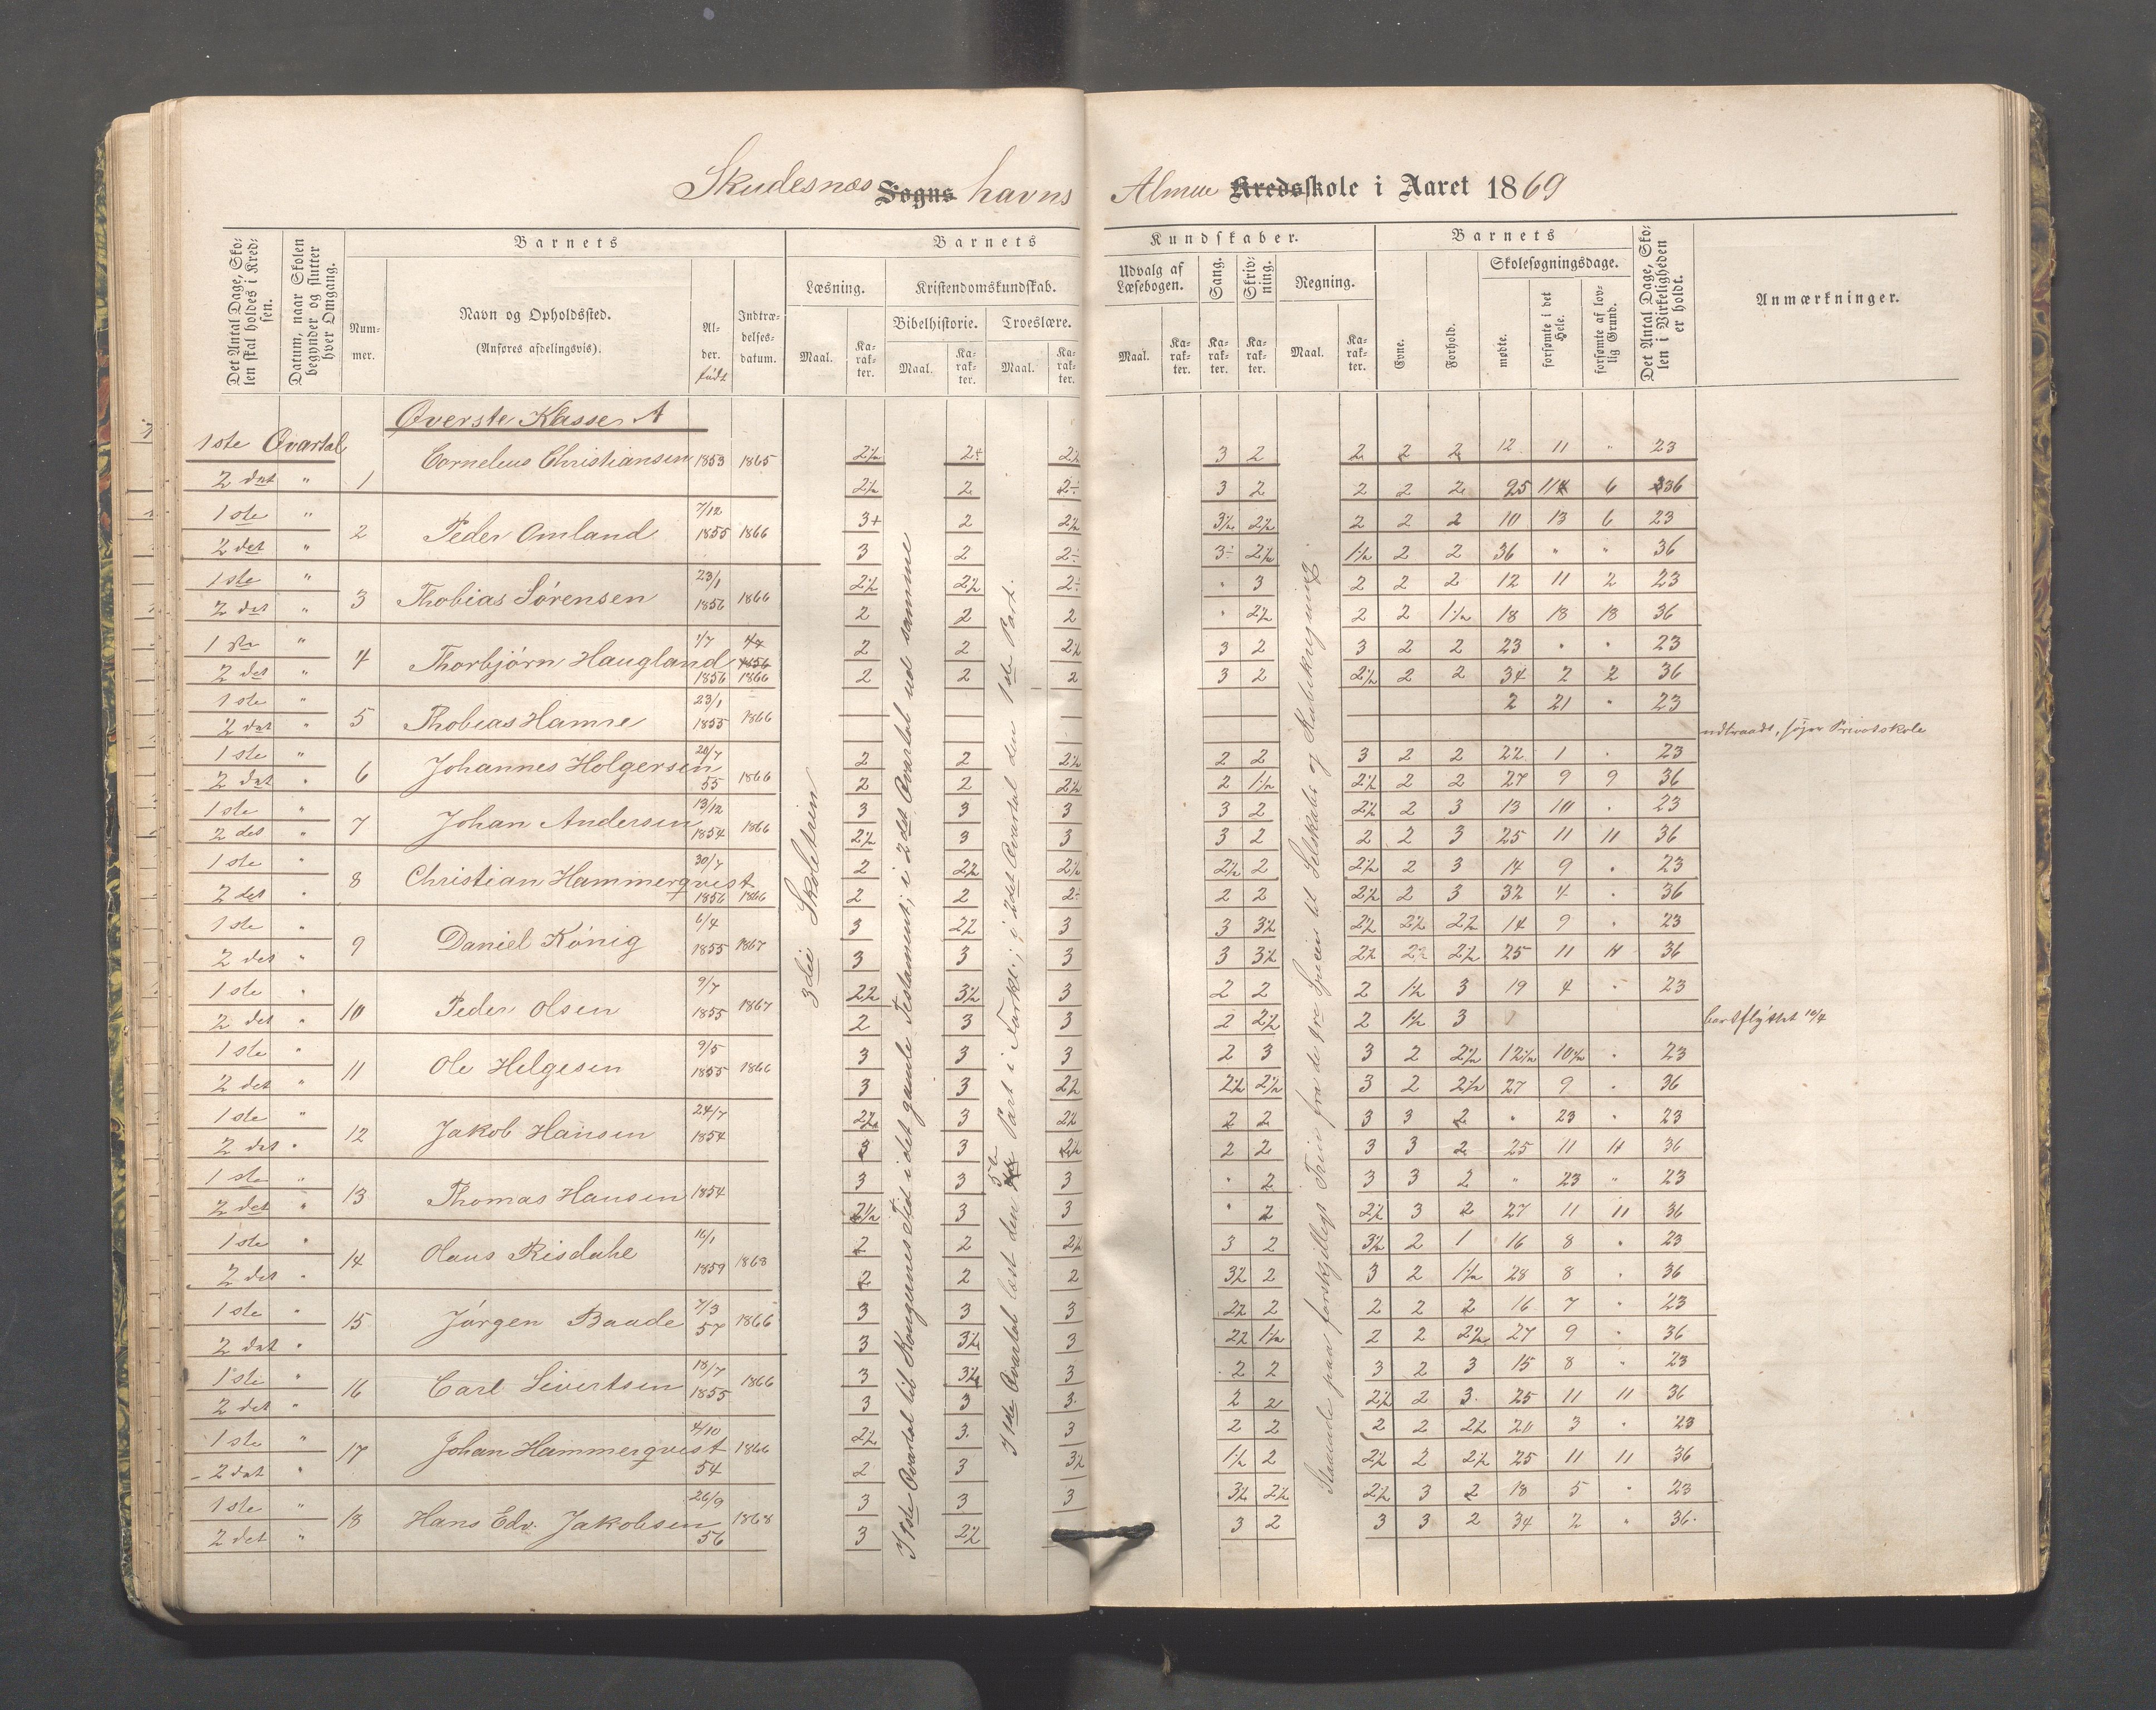 Skudesnæs Sogns havns Almue Kredsskole i Aaret 1869
Det Antal Dage, Skolen skal holdes i Kredsen.
Datum, naar Skolen begynder og slutter hver Omgang.
Barnets
Nummer.
Navn og Opholdssted.
(Anføres afdelingsvis).
Alder. født
Indtrædelses-datum.
Barnets Kundskaber.
Læsning.
Maal. Karakter.
Kristendomskundskab.
Bibelhistorie. Troeslære.
Maal. Karakter. Maal. Karakter.
Udvalg af Læsebogen.
Maal. Karakter.
Sang. Karakter.
Skrivning. Karakter.
Regning.
Maal. Karakter.
Barnets
Evne. Forhold.
Skolesøgningsdage.
mødte. forsømte i det Hele. forsømte af lovlig Grund.
Det Antal Dage, Skolen i Virkeligheden er holdt.
Anmærkninger.
Øverste Klasse A
1ste Qvartal Cornelius Christiansen 1853 1865 2½ 2+ 2½ 3 2 2 2 2 12 11 " 23
2det " 1 2½ 2 2÷ 3 2 2 2 2 25 11 6 36
1ste " 2 Peder Omland 7/12 1855 1866 3+ 2 2½ 3½ 2½ 2 2 2 10 13 6 23
2det " 3 2 2÷ 3÷ 2½ 1½ 2 2 36 " " 36
1ste " 3 Thobias Sörensen 23/1 1856 1866 2½ 2½ 2÷ " 3 2 2 2 12 11 2 23
2det " 2 2 2 " 2½ 2 2 1½ 18 18 18 36
1ste " 4 Thorbjörn Haugland 1/7 1856 1866 2 2 2½ 3 2 3 2 2 23 " " 23
2det " 2 2 2 3 2 2½ 2 2 34 2 2 36
1ste " 5 Thobias Hamre 23/1 1855 1866 2 21 " 23
2det " udtraadt, søger Privatskole
1ste " 6 Johannes Holgersen 20/7 55 1866 2 2 2½ 2 2 3 2 2 22 1 " 23
2det " 2 2 2½ 2 1½ 2½ 2 2 27 9 9 36
1ste " 7 Johan Andersen 13/12 1854 1866 3 3 3 3 2 2½ 2 3 13 10 " 23
2det " 2½ 3 3 3 2 2 2 3 25 11 11 36
1ste " 8 Christian Hammerqvist 30/7 1856 1866 2 2½ 2½ 2½ 2 2½ 2 3 14 9 " 23
2det " 2 2 2÷ 2 2 2½ 2 3 32 4 " 36
1ste " 9 Daniel König 6/4 1855 1867 3 2½ 3 3 3½ 2½ 2½ 2½ 14 9 " 23
2det " 3 3 3 3 3½ 2½ 2½ 2½ 25 11 11 36
1ste " 10 Peder Olsen 9/7 1855 1867 2½ 3½ 3 2 2 2 1½ 3 19 4 " 23
2det " 2 3 3 2 2½ 2 1½ 3 bortflyttet 10/4
1ste " 11 Ole Helgesen 9/5 1855 1866 3 3 3 2 3 3 2 2½ 12½ 10½ " 23
2det " 3 3 2½ 2½ 2½ 3 2 2½ 27 9 " 36
1ste " 12 Jakob Hansen 24/7 1854 2½ 3 2½ 2 2 3 3 2 " 23 " 23
2det " 3 3 2½ 2 2 3 3 2 25 11 11 36
1ste " 13 Thomas Hansen 1854 3 3 3 " 2 3 3 2 " 23 " 23
2det " 2½ 3 3 " 2 2½ 3 2 27 11 11 36
1ste " 14 Olaus Risdahl 16/1 1859 1868 2 2 2½ 3 2 3½ 2 1 16 8 " 23
2det " 2 2 2 3½ 2 3 2 1½ 28 8 " 36
1ste " 15 Jörgen Baade 7/3 57 1866 3 3 3 2½ 2 2 2 2 16 7 " 23
2det " 3 3½ 3 2½ 1½ 2 2 2½ 27 9 " 36
1ste " 16 Carl Sivertsen 18/7 1855 1866 3 3½ 3 2 2 3 2 3 15 8 " 23
2det " 3 3 3 2 2 2½ 2 3 25 11 11 36
1ste " 17 Johan Hammerqvist 4/10 54 1866 2½ 3 3 2 2 2 2 2½ 20 3 " 23
2det " 2 3 3½ 1½ 2 2½ 2 2½ 25 11 11 36
1ste " 18 Hans Edv. Jakobsen 26/9 56 1868 3 3 3 3½ 2½ 2½ 3 2 18 5 " 23
2det " 3 2½ 3 2 3 3 2 34 2 " 36
3die Skoletrin
I 1ste Qvartal til Kongernes Tid i det gamle Testament; i 2det Qvartal ud samme
I 1ste Qvartal læst den 3die Part i ; i 2det Qvartal den 1ste Part.
Staaende paa forskjelligt Trin fra de fire Species til Selskabs og Kubikregning